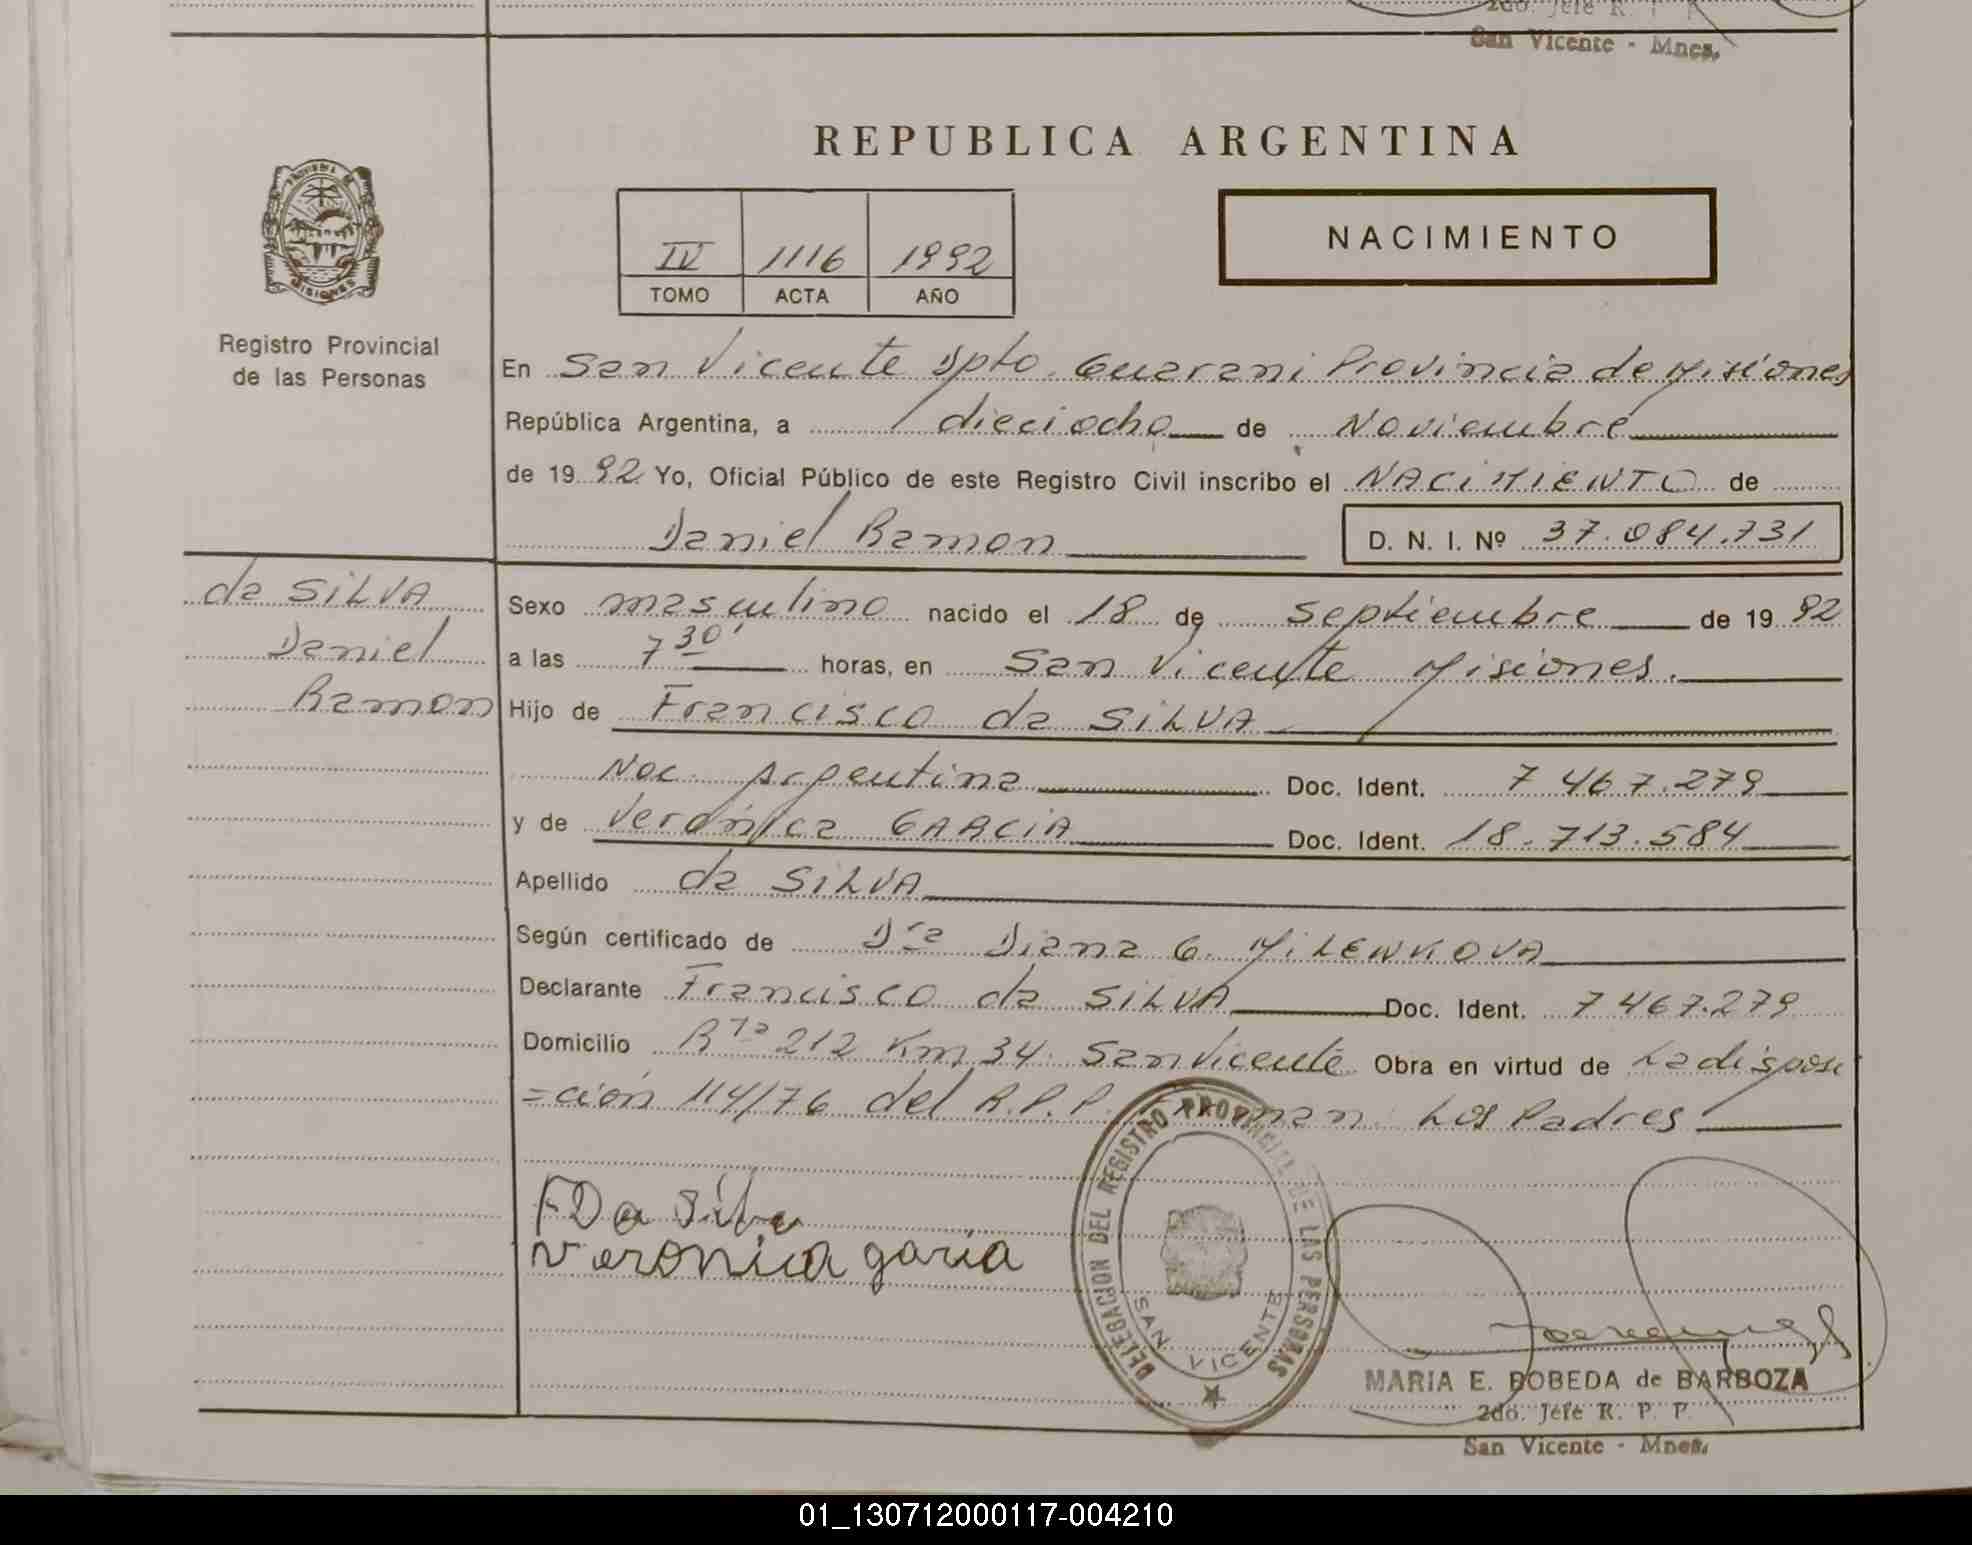 2do. Jefe R. P. P.
San Vicente - Mnes.
REPUBLICA ARGENTINA
PROVINCIA DE
MISIONES
Registro Provincial
de las Personas
IV 1116 1992
TOMO ACTA AÑO
NACIMIENTO
En San Vicente Dpto. Guarani Provincia de Misiones
República Argentina, a dieciocho de Noviembre
de 1992 Yo, Oficial Público de este Registro Civil inscribo el NACIMIENTO de
Daniel Ramon D. N. I. Nº 37.084.731
da SILVA
Daniel
Ramon
Sexo masculino nacido el 18 de Septiembre de 1992
a las 7 30' horas, en San Vicente Misiones.
Hijo de Francisco da SILVA
Nac. Argentina Doc. Ident. 7 467.279
y de Verónica GARCIA Doc. Ident. 18.713.584
Apellido da SILVA
Según certificado de Dra Diana G. MILENKOVA
Declarante Francisco da SILVA Doc. Ident. 7 467.279
Domicilio Rta 212 Km 34. San Vicente Obra en virtud de La disposi
=ción 114/76 del R.P.P. Firman: Los Padres
F Da Silva
Veronica garcia
DELEGACION DEL REGISTRO PROVINCIAL DE LAS PERSONAS
SAN VICENTE
MARIA E. BOBEDA de BARBOZA
2do. Jefe R. P. P.
San Vicente - Mnes.
01_130712000117-004210